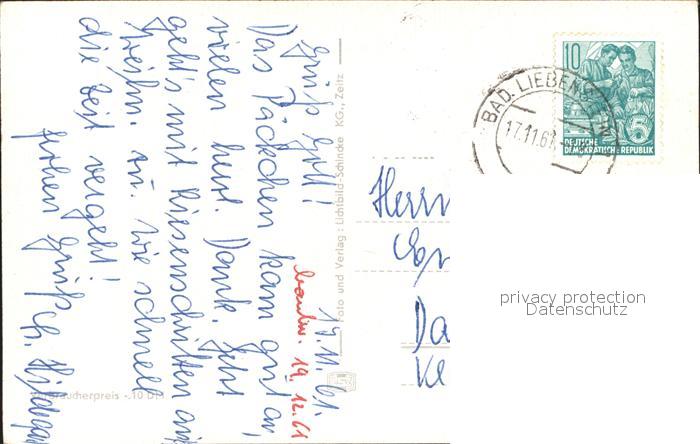 17.11.61.
Grüß Gott!
Das Päckchen kam gut an,
vielen herzl. Dank. Jetzt
geht's mit Riesenschritten auf
Weihn. zu. Wie schnell
die Zeit vergeht!
frohen Gruß
19.12.61
Foto und Verlag: Lichtbild-Schincke KG., Zeitz
Verbraucherpreis -.10 DM
BAD LIEBENSTEIN
17.11.61
10
5
DEUTSCHE
DEMOKRATISCHE REPUBLIK
Herrn
Da
Ke
privacy protection
Datenschutz